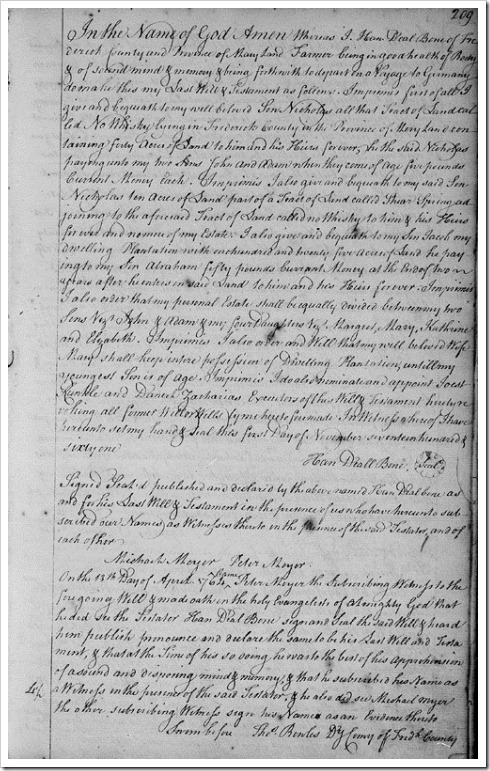 209
In the Name of God Amen Whereas I Han Deal Bone of Fre-
derick County and Province of Maryland Farmer being in good health of Body
& of sound mind & memory & being forthwith to depart on a Voyage to Germany
do make this my Last Will & Testament as follows. Imprimis first of all I
give and bequeath to my well beloved Son Nicholas all that Tract of Land cal
led No Whisky lying in Frederick County in the Province of Mary Land con
taining forty Acres of Land to him and his Heirs forever, he the said Nicholas
paying unto my two Sons John and Adam when they come of Age five pounds
Current Money Each. Imprimis I also give and bequeath to my said Son
Nicholas ten Acres of Land part of a Tract of Land called Spring ad
joining to the aforesaid Tract of Land called no Whisky to him & his Heirs
forever and no more of my Estate. I also give and bequeath to my Son Jacob my
dwelling Plantation with one hundred and twenty five Acres of Land he pay
ing to my Son Abraham fifty pounds Current Money at the End of two
years after he enters on said Land to him and his Heirs forever. Imprimis
I also order that my personal Estate shall be equally divided between my two
Sons Vizt John & Adam & my four Daughters Vizt Margret, Mary, Kathrine
and Elizabeth. Imprimis I also order and Will that my well beloved Wife
Mary shall keep intire possession of Dwelling Plantation, untill my
youngest Son is of Age. Imprimis I do also Nominate and appoint Joest
Runkle and Daniel Zacharias Executors of this Will & Testament hereby re
voking all former Will or Wills by me heretofore made In Witness whereof I have
hereunto set my hand & Seal this first Day of November seventeen hundred &
sixty one
Han Deall Bone Seal
Signed Seal'd published and declared by the above named Han Deal bone as
and for his Last Will & Testament in the presence of us who have hereunto sub
scribed our Names, as Witnesses thereto in the presence of the said Testator, and of
each other
Michael Moyer Peter Moyer
On the 13th Day of April 1762 Came Peter Moyer the Subscribing Witness to the
foregoing Will & made oath on the holy Evangelists of Almighty God that
he did see the Testator Han Deal Bone sign and Seal the said Will & heard
him publish pronounce and declare the same to be his Last Will and Testa
ment, & that at the Time of his so doing, he was to the best of his Apprehension
of a sound and disposing mind & memory, & that he subscribed his Name as
a Witness in the presence of the said Testator, & he also did see Michael Myer
the other subscribing Witness sign his Name as an Evidence thereto
Sworn before Thos. Bowles Dy Comy of Fredk County